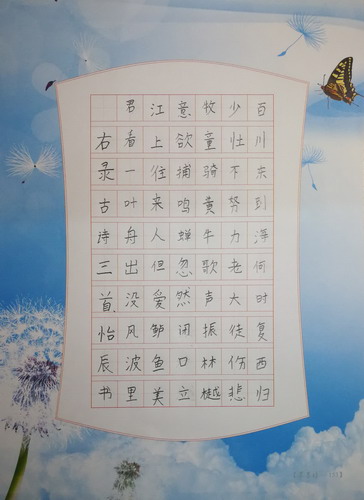 百川东到海何时复西归
少壮不努力老大徒伤悲
牧童骑黄牛歌声振林樾
意欲捕鸣蝉忽然闭口立
江上往来人但爱鲈鱼美
君看一叶舟出没风波里
右录古诗三首怡辰书